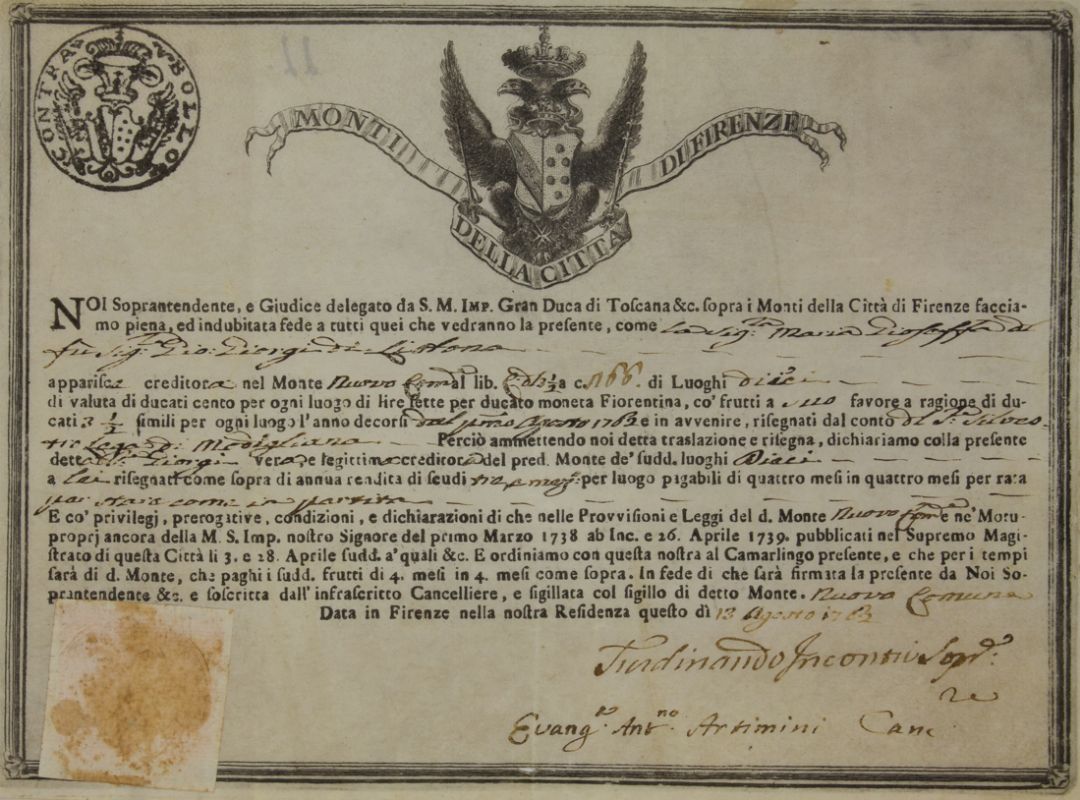 CONTRA BOLLO
MONTI
DELLA CITTA
DI FIRENZE
NOI Soprantendente, e Giudice delegato da S. M. IMP. Gran Duca di Toscana &c. sopra i Monti della Città di Firenze faccia-
mo piena, ed indubitata fede a tutti quei che vedranno la presente, come la Sig.ra Maria
fu Sig.re Gio: Giorgi di
apparisce creditora nel Monte Nuovo lib. a c. 166. di Luoghi dieci
di valuta di ducati cento per ogni luogo di lire sette per ducato moneta Fiorentina, co' frutti a suo favore a ragione di du-
cati 3 ½ simili per ogni luogo l'anno decorsi dal Agosto e in avvenire, risegnati dal conto
di Modigliana Perciò ammettendo noi detta traslazione e risegna, dichiariamo colla presente
detta Giorgi vera, e legittima creditora del pred. Monte de' sudd. luoghi Dieci
a Lei risegnati come sopra di annua rendita di scudi tre, e mez: per luogo pagabili di quattro mesi in quattro mesi per rata
come in partita
E co' privilegj, prerogative, condizioni, e dichiarazioni di che nelle Provvisioni e Leggi del d. Monte Nuovo e ne' Motu-
proprj ancora della M. S. Imp. nostro Signore del primo Marzo 1738 ab Inc. e 26. Aprile 1739. pubblicati nel Supremo Magi-
strato di questa Città li 3. e 28. Aprile sudd. a' quali &c. E ordiniamo con questa nostra al Camarlingo presente, e che per i tempi
sarà di d. Monte, che paghi i sudd. frutti di 4. mesi in 4. mesi come sopra. In fede di che sarà firmata la presente da Noi So-
prantendente &c. e soscritta dall' infrascritto Cancelliere, e sigillata col sigillo di detto Monte. Nuovo Comune
Data in Firenze nella nostra Residenza questo dì 13 Agosto
Ferdinando Incontri Sop.
re
Evang.ta Ant.no Artimini Canc